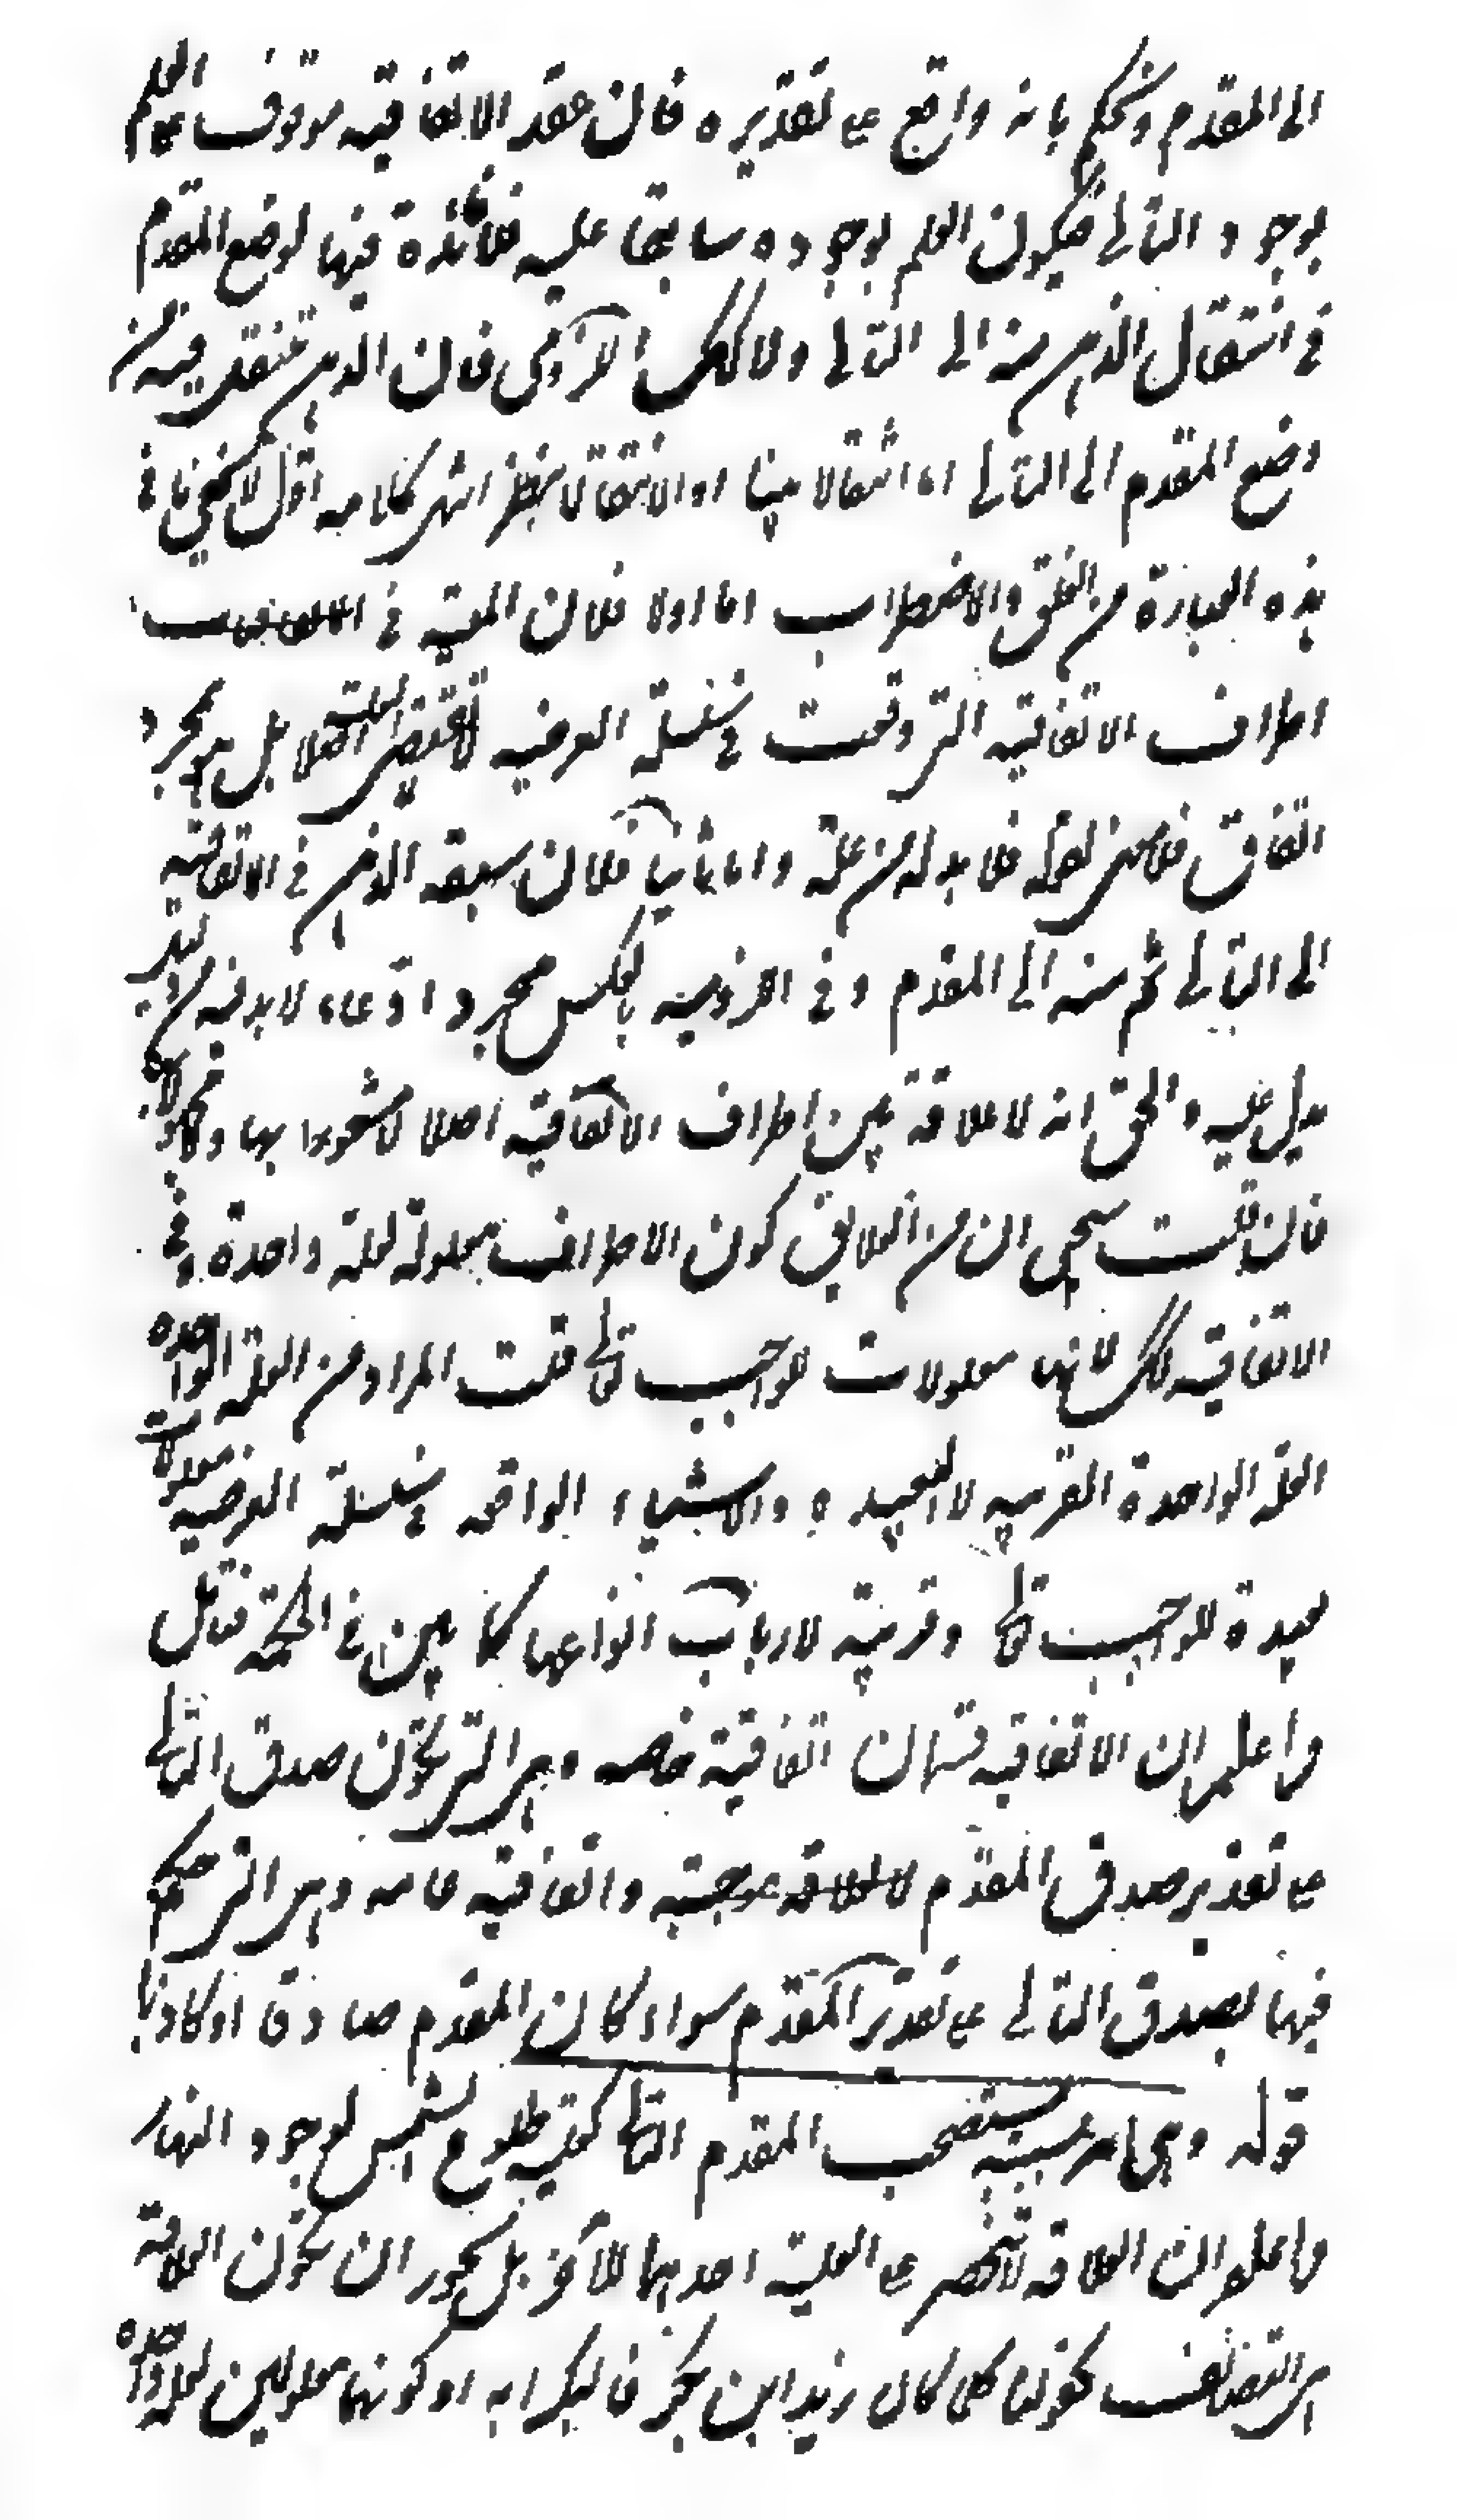 الى المقدم ويحكم بانه واقع على تقديره فان عقد الاتفاقية موقوف على العلم
بوجود التالى فيكون العلم بوجوده سابقا عليه فلا فائدة فيها لوضع المقدم
فى انتقال الذهن منه الى التالى ولا كك الاخرى فان الذهن ينتقل فيه من
وضع المقدم الى التالى اما انتقالا بينا او الانتقالا بنظر انتهى كلامه اقول لا يخفى ما فى
هذه العبارة من القلق والاضطراب اما اولا فلان المعية فى
اطراف الاتفاقية التى وقعت فى سلسلة العرضية لا تقتضى العلة اصلا بل هو مجرد
اتفاق فلا معنى لقوله فلا بد له من علة واما ثانيا فلان سبقه الذهن فى الاتفاقية
الى التالى ثم منه الى المقدم وفى اللزومية بالعكس مجرد ادعاء لا بد فيه من
دليل عليه والحق انه لا علاقة بين اطراف الاتفاقية اصلا لا مشعورا بها ولا
فان قلت سيجئ ان من العلايق كون الاطراف معلولة لعلة واحدة وفى
الاتفاقية كك لانها معلولات للواجب تعالى قلت المراد من العلة الواحدة
العلة الواحدة القريبة لا البعيدة والاشياء الواقعة فى سلسلة العرضية معلولات
بعيدة للواجب تعالى وقريبة لارباب انواعها كما بين فى الحكمة فتامل
واعلم ان الاتفاقية قسمان اتفاقية خاصه وهى التى يكون صدق التالى
على تقدير صدق المقدم لا لعلاقة موجبة واتفاقية عامه وهى التى حكم
فيها بصدق التالى على تقدير المقدم سواء كان المقدم صادقا او كاذبا
قوله وهى امر بسببه يستصحب المقدم التالى كعلية طلوع الشمس لوجود النهار
واعلم ان العلاقه لا تنحصر على العلية احدهما للآخر بل يجوز ان يكون العلاقة
هى التضايف كقولنا كلما كان زيد ابن بكر فا لبكر ابه او كونهما معلولين لعلة واحدة